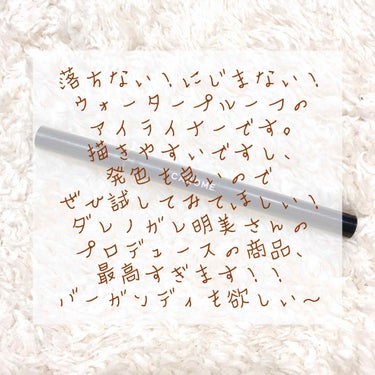 落ちない！にじまない！
ウォータープルーフの
アイライナーです。
描きやすいですし、
発色も良いので
ぜひ試してみてほしい！
ダレノガレ明美さんの
プロデュースの商品、
最高すぎます！！
バーガンディも欲しい〜